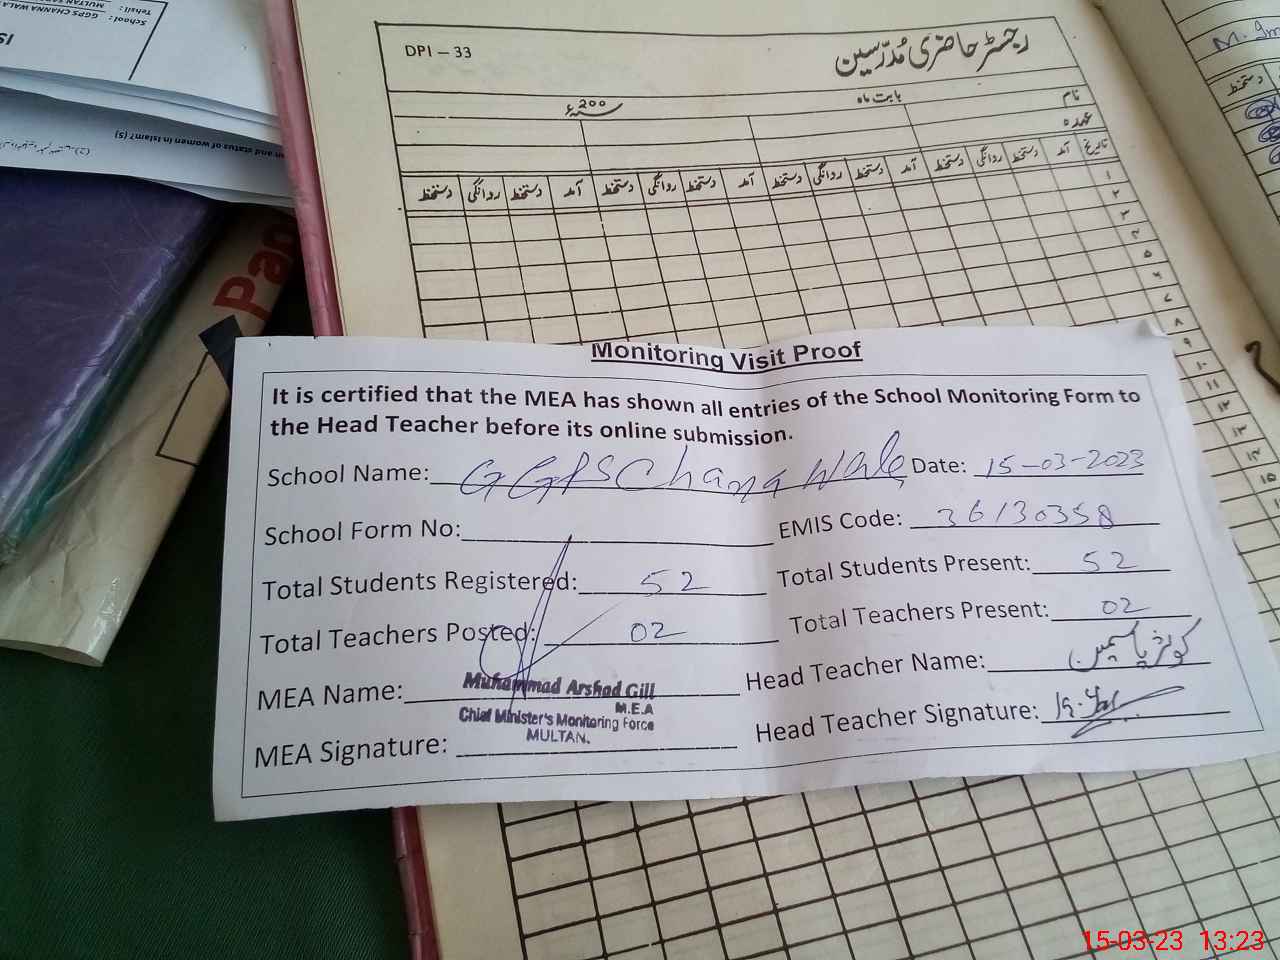 Tehsil :
MULTAN SADDAR
School :
GGPS CHANNA WALA
an and status of women in Islam? (5)
Pan
DPI – 33
رجسٹر حاضری مُدرّسین
بابت ماہ
سنہ 200ء
نام
عہدہ
تاریخ آمد دستخط روانگی دستخط آمد دستخط روانگی دستخط آمد دستخط روانگی دستخط آمد دستخط روانگی دستخط
۱
۲
۳
۴
۵
۶
۷
۸
۹
۱۰
۱۱
۱۲
۱۳
۱۴
۱۵
دستخط
Monitoring Visit Proof
It is certified that the MEA has shown all entries of the School Monitoring Form to
the Head Teacher before its online submission.
School Name: GGPS Chana Wala Date: 15-03-2023
School Form No: EMIS Code: 36130358
Total Students Registered: 52 Total Students Present: 52
Total Teachers Posted: 02 Total Teachers Present: 02
MEA Name: Muhammad Arshad Gill Head Teacher Name: کوثر یاسمین
M.E.A
Chief Minister's Monitoring Force
MULTAN.
MEA Signature: Head Teacher Signature:
15-03-23 13:23